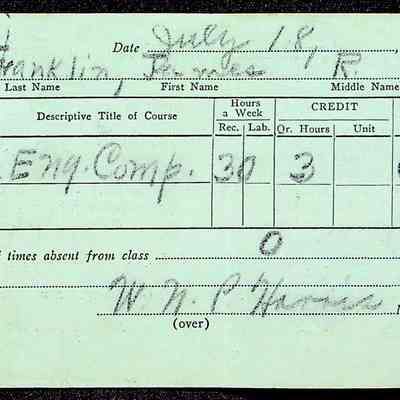 Date July 18,
Franklin, James R.
Last Name First Name Middle Name
Hours a Week CREDIT
Descriptive Title of Course Rec. Lab. Qr. Hours Unit
Eng. Comp. 3 0 3
times absent from class 0
W. N. P. Harris
(over)